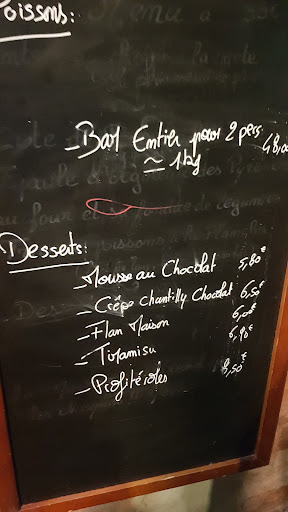 Poissons:
- Bar Entier pour 2 pers 48,00
≃ 1kg
Desserts:
- Mousse au Chocolat 5,80€
- Crêpe Chantilly Chocolat 6,50€
- Flan Maison 6,00€
- Tiramisu 6,90€
- Profitéroles 8,50€